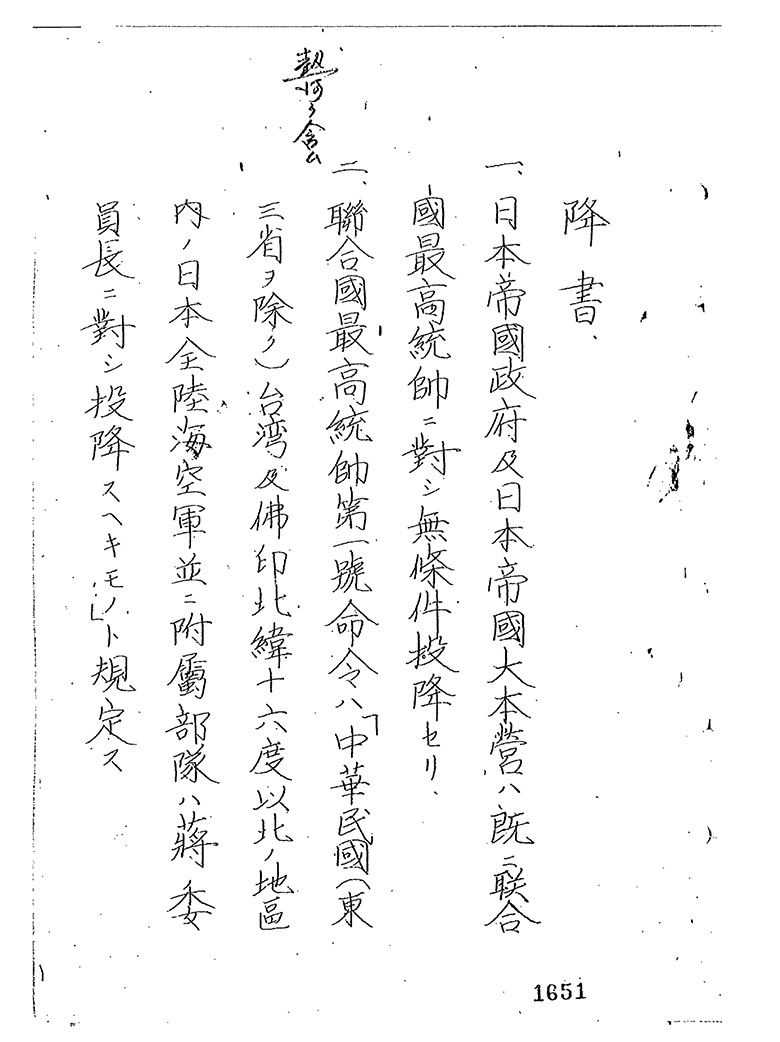 降書、
一、日本帝國政府及日本帝國大本營ハ既ニ联合
國最高統帥ニ對シ無條件投降セリ、
二、聯合國最高統帥第一號命令ハ「中華民國(東
三省ヲ除ク)台湾及佛印北緯十六度以北ノ地區
内ノ日本全陸海空軍並ニ附屬部隊ハ蔣委
員長ニ對シ投降スヘキモノ」ト規定ス
熱河ヲ含ム
1651